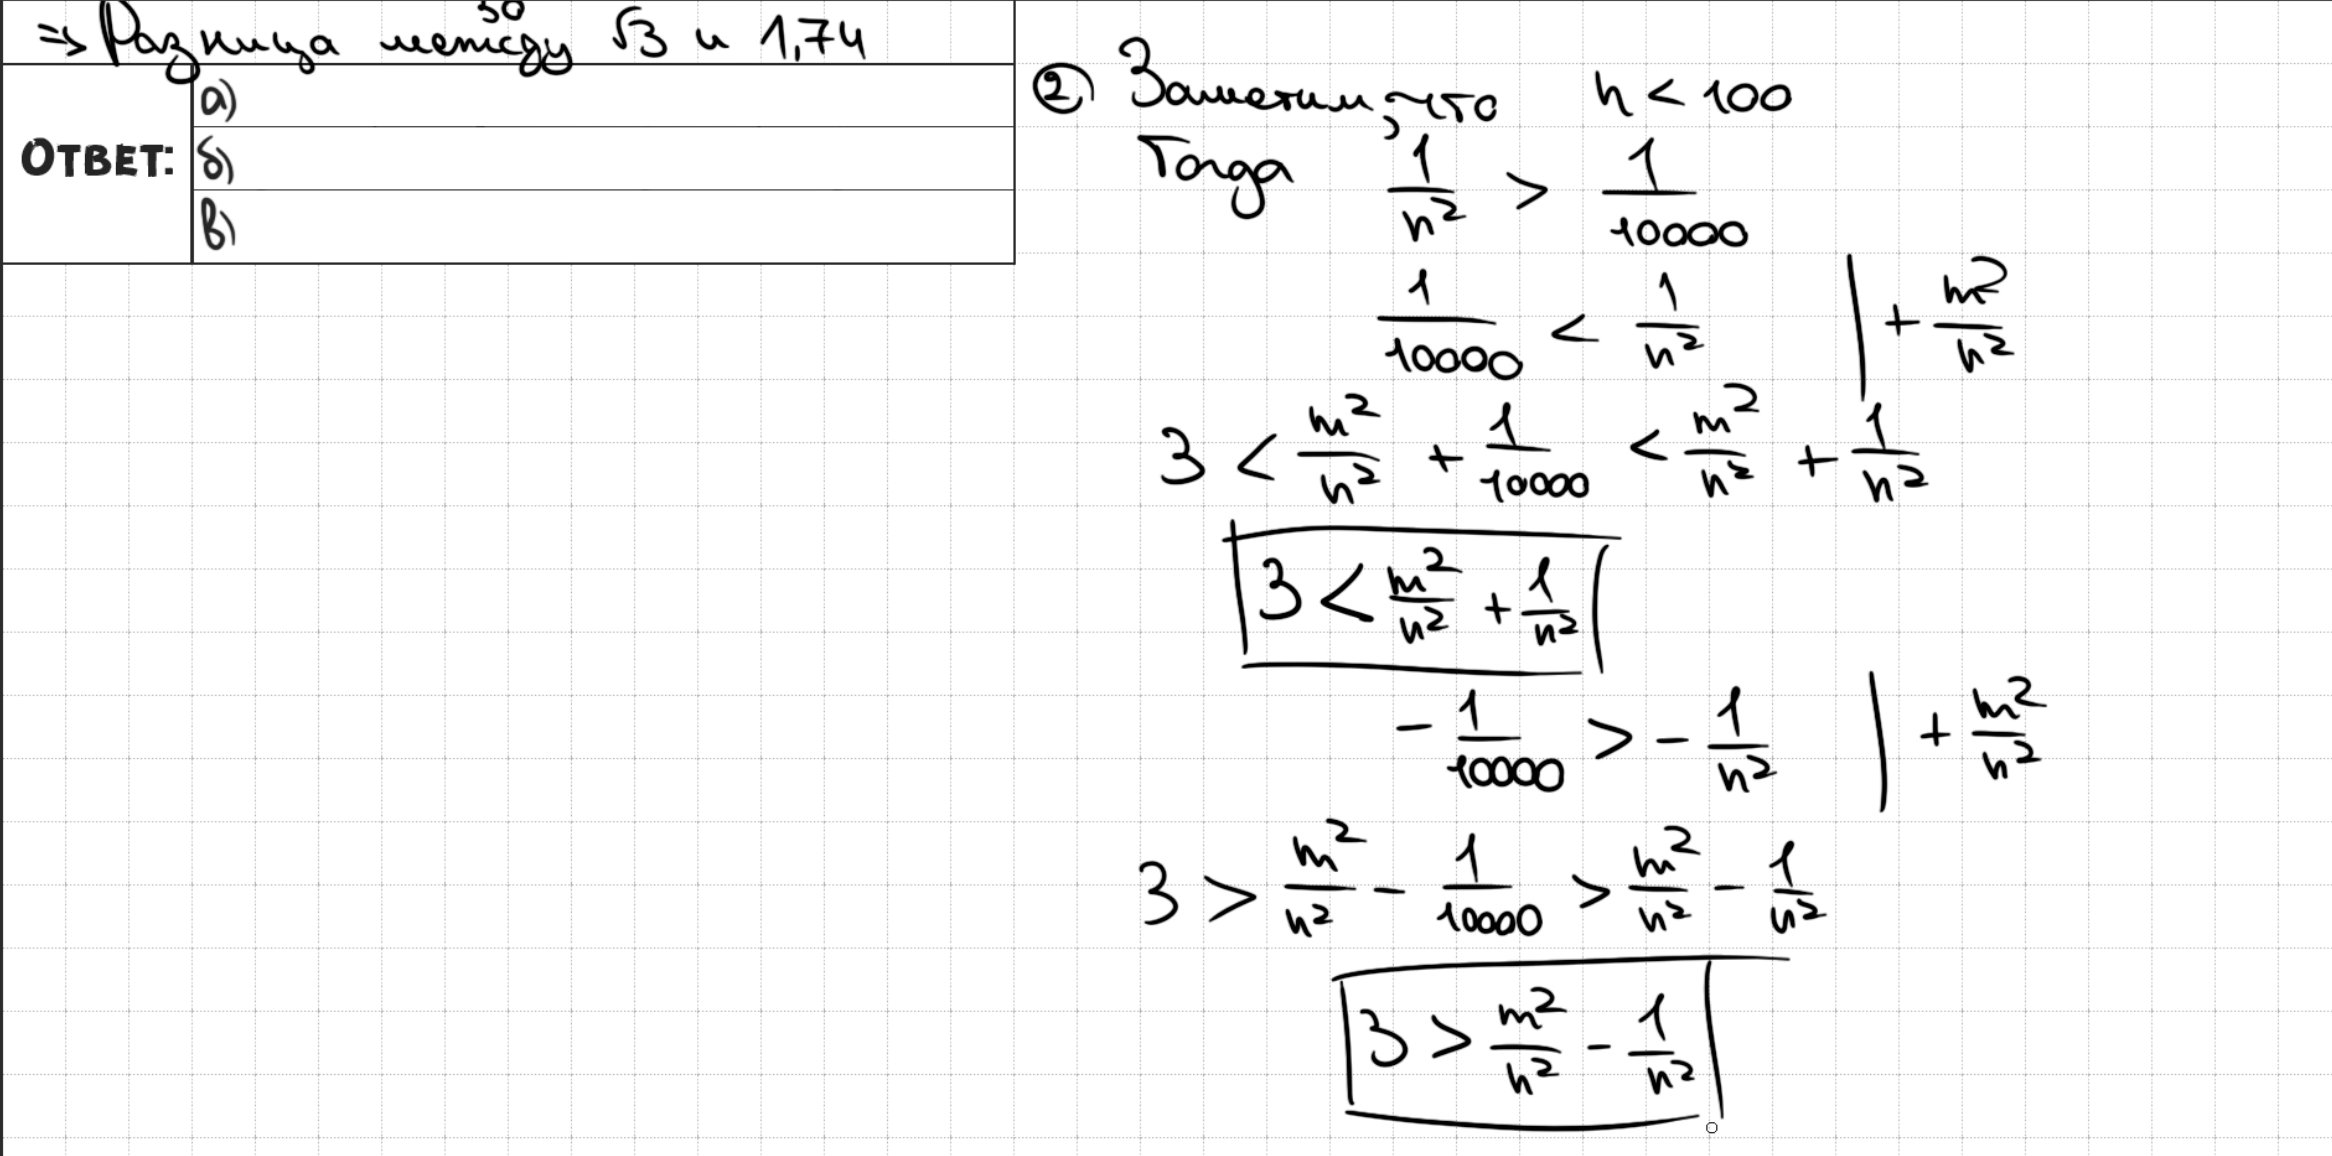 30
⇒ Разница между √3 и 1,74
ОТВЕТ:
а)
б)
в)
② Заметим, что n < 100
Тогда 1/n² > 1/10000
1/10000 < 1/n² | + m²/n²
3 < m²/n² + 1/10000 < m²/n² + 1/n²
3 < m²/n² + 1/n²
- 1/10000 > - 1/n² | + m²/n²
3 > m²/n² - 1/10000 > m²/n² - 1/n²
3 > m²/n² - 1/n²